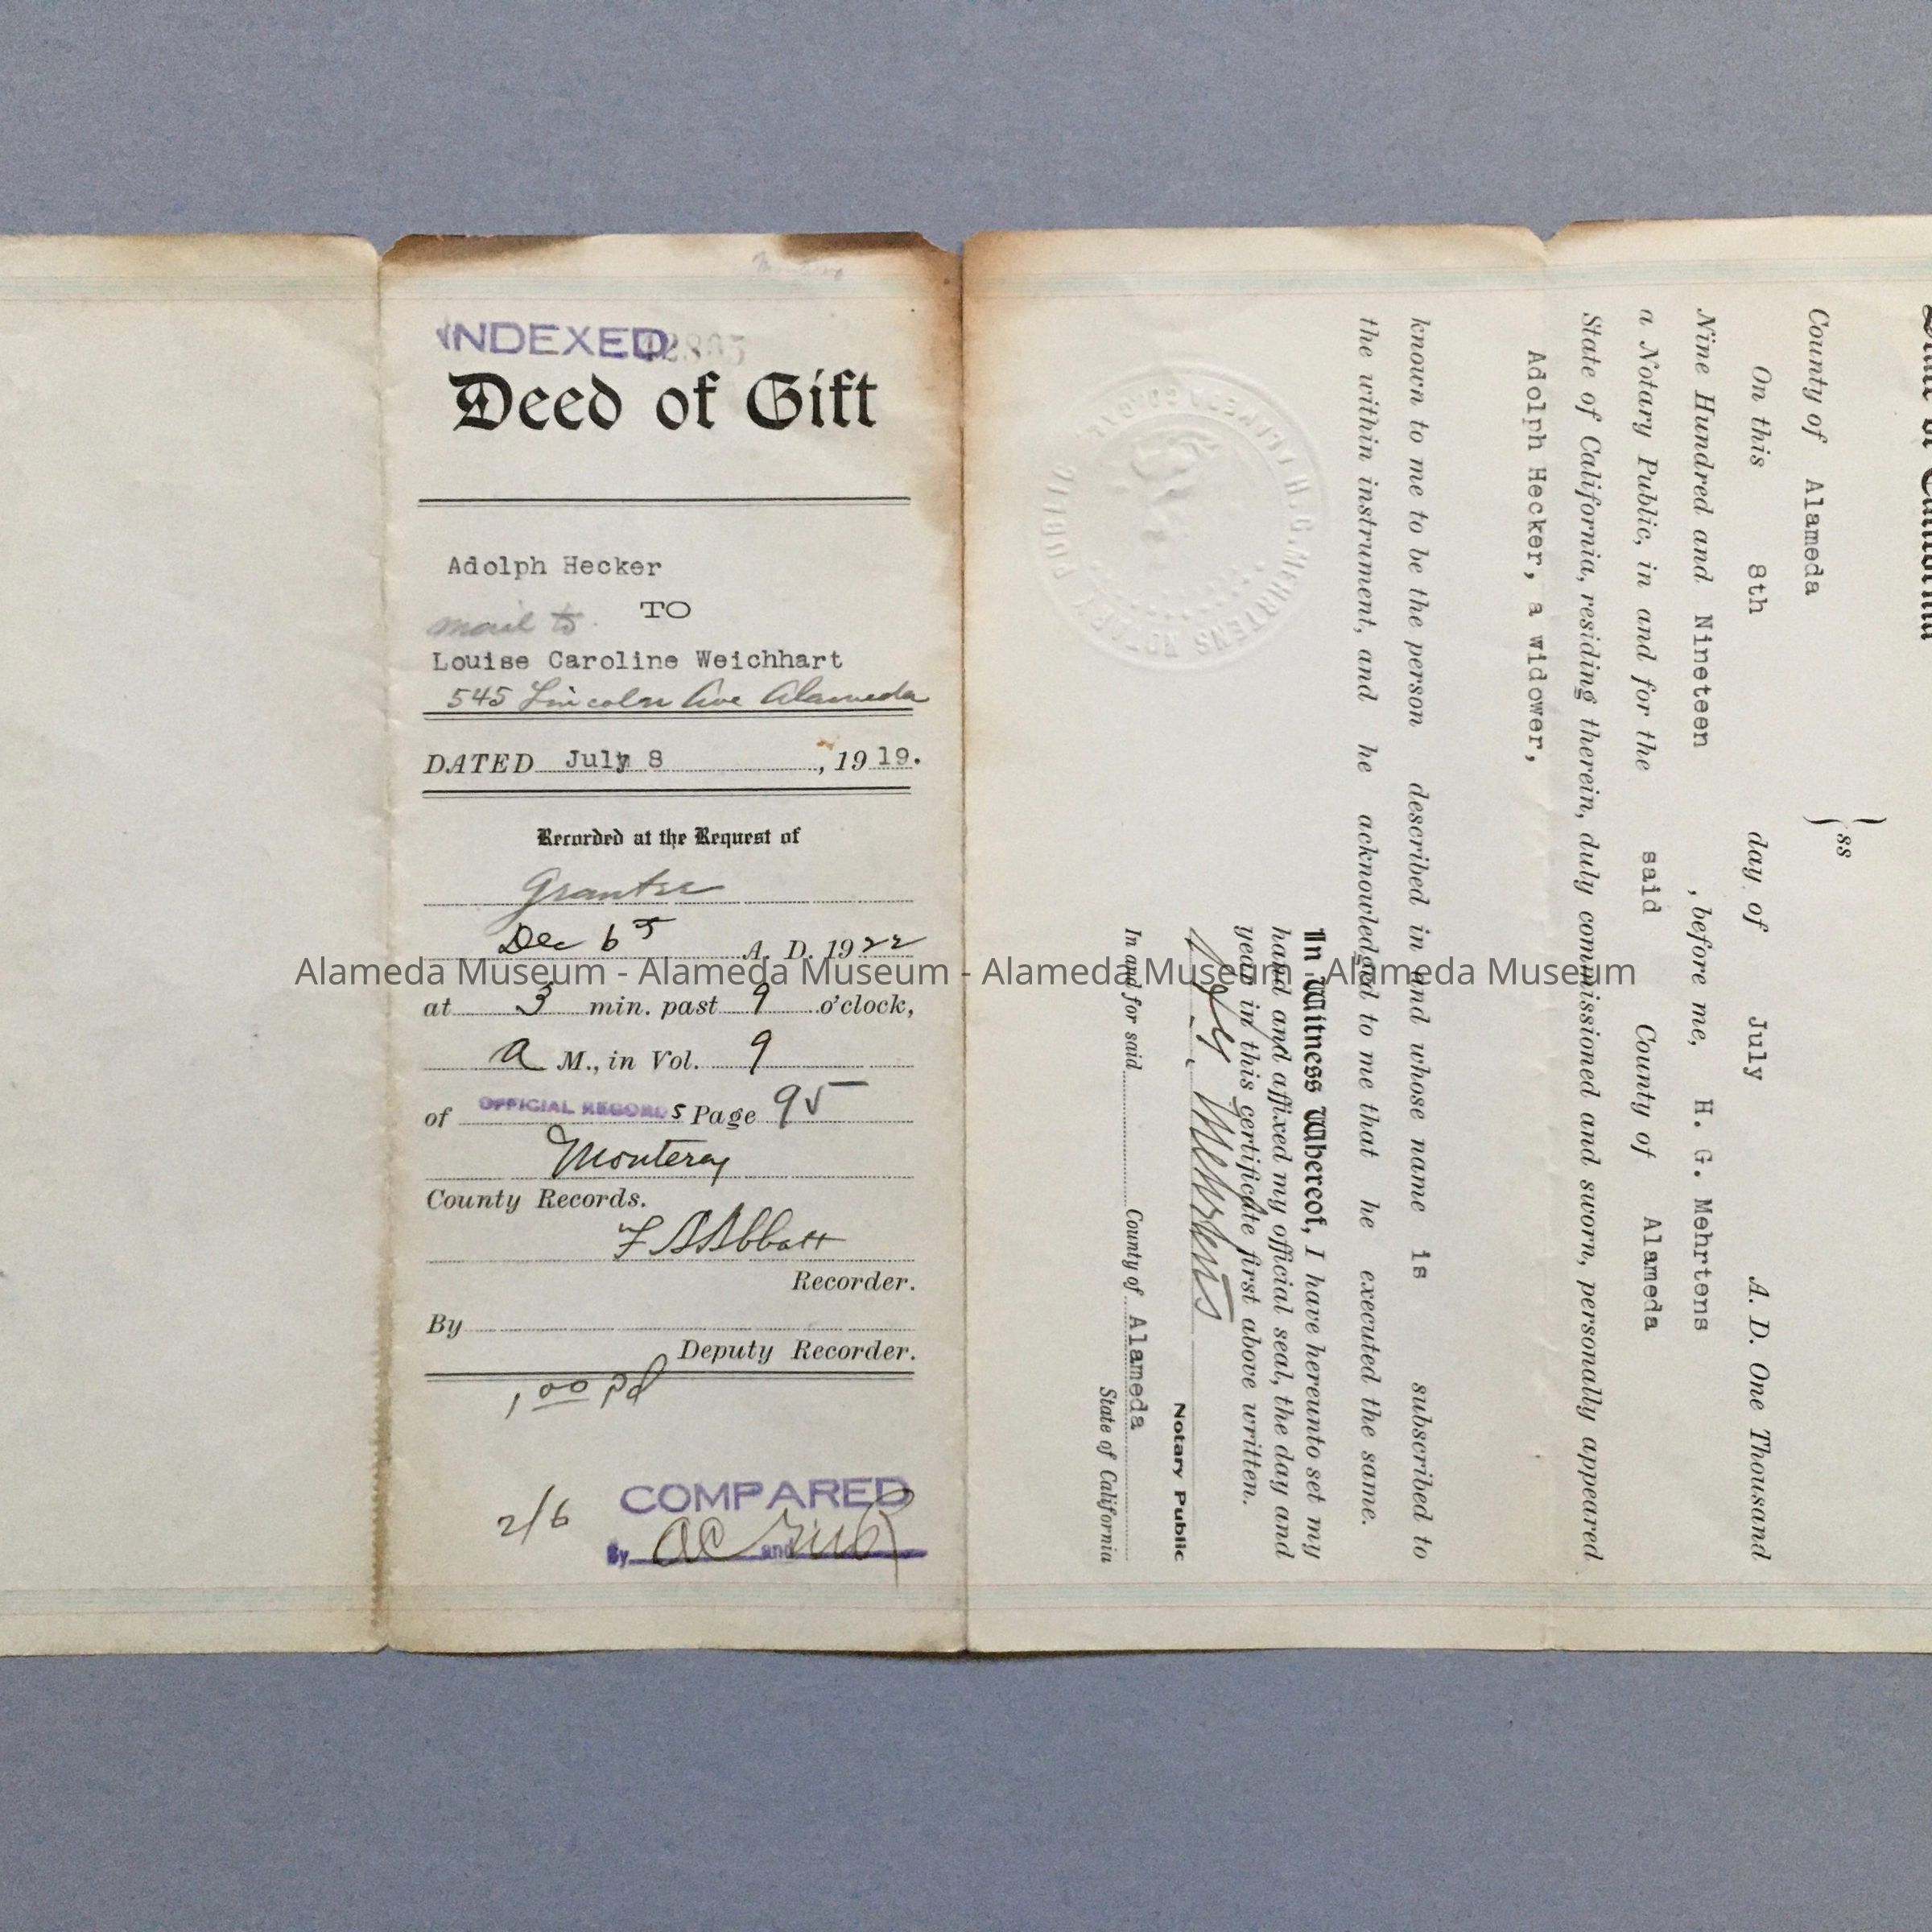 INDEXED
Deed of Gift
Adolph Hecker
TO
mail to
Louise Caroline Weichhart
545 Lincoln Ave Alameda
DATED July 8, 1919.
Recorded at the Request of
Grantee
Dec 6 A. D. 1922
at 3 min. past 9 o'clock,
a M., in Vol. 9
of OFFICIAL RECORDS Page 95
Monterey
County Records.
F A Abbott
Recorder.
By
Deputy Recorder.
1 00 pd
2/6
COMPARED
By and
State of California
County of Alameda } ss
On this 8th day of July A. D. One Thousand
Nine Hundred and Nineteen, before me, H. G. Mehrtens
a Notary Public, in and for the said County of Alameda
State of California, residing therein, duly commissioned and sworn, personally appeared
Adolph Hecker, a widower,
known to me to be the person described in and whose name is subscribed to
the within instrument, and he acknowledged to me that he executed the same.
In Witness Whereof, I have hereunto set my
hand and affixed my official seal, the day and
year in this certificate first above written.
H. G. Mehrtens
Notary Public
In and for said County of Alameda
State of California
H. G. MEHRTENS NOTARY PUBLIC ALAMEDA CO. CAL.
Alameda Museum - Alameda Museum - Alameda Museum - Alameda Museum